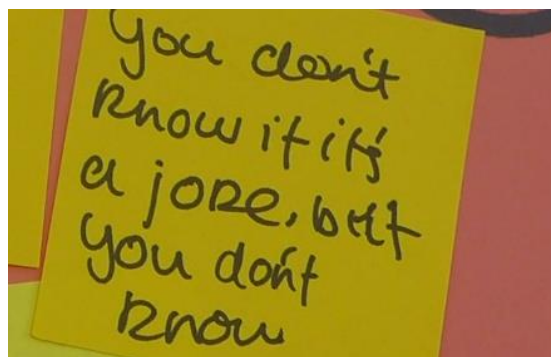 you don't
know if it's
a joke, but
you don't
know